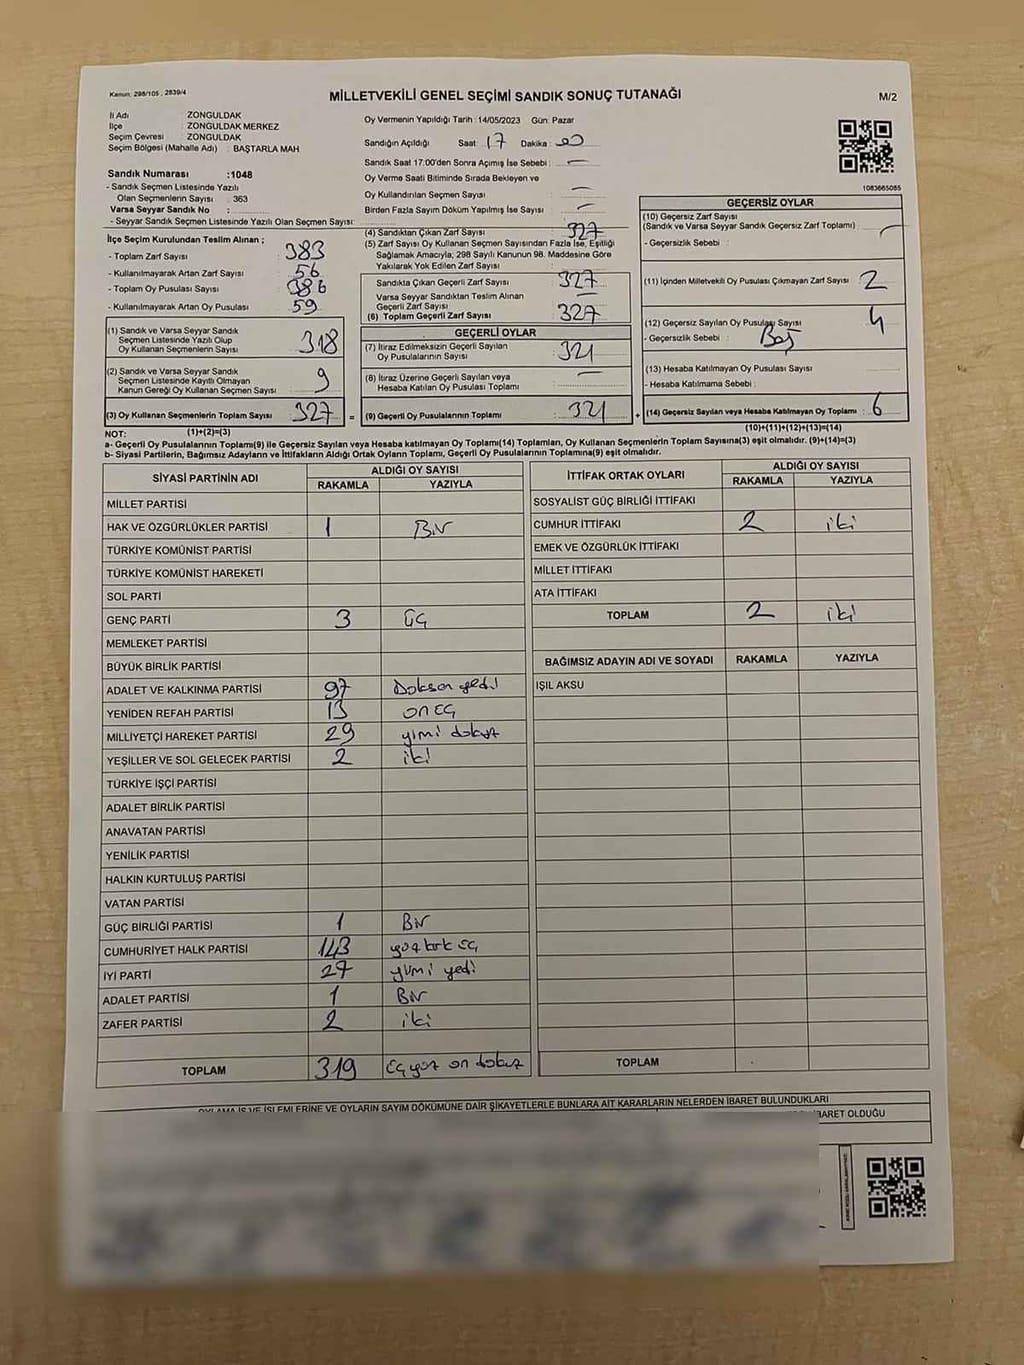 Kanun: 298/105 , 2839/4
MİLLETVEKİLİ GENEL SEÇİMİ SANDIK SONUÇ TUTANAĞI
M/2
İl Adı ZONGULDAK
İlçe ZONGULDAK MERKEZ
Seçim Çevresi ZONGULDAK
Seçim Bölgesi (Mahalle Adı) : BAŞTARLA MAH
Sandık Numarası :1048
- Sandık Seçmen Listesinde Yazılı
Olan Seçmenlerin Sayısı : 363
Varsa Seyyar Sandık No :
- Seyyar Sandık Seçmen Listesinde Yazılı Olan Seçmen Sayısı:
Oy Vermenin Yapıldığı Tarih :14/05/2023 Gün: Pazar
Sandığın Açıldığı Saat: 17 Dakika: 00
Sandık Saat 17:00'den Sonra Açımış İse Sebebi : —
Oy Verme Saati Bitiminde Sırada Bekleyen ve
Oy Kullandırılan Seçmen Sayısı : —
Birden Fazla Sayım Döküm Yapılmış İse Sayısı : —
1083665085
İlçe Seçim Kurulundan Teslim Alınan ;
- Toplam Zarf Sayısı : 383
- Kullanılmayarak Artan Zarf Sayısı : 56
- Toplam Oy Pusulası Sayısı : 386
- Kullanılmayarak Artan Oy Pusulası : 59
(1) Sandık ve Varsa Seyyar Sandık
Seçmen Listesinde Yazılı Olup
Oy Kullanan Seçmenlerin Sayısı : 318
(2) Sandık ve Varsa Seyyar Sandık
Seçmen Listesinde Kayıtlı Olmayan
Kanun Gereği Oy Kullanan Seçmen Sayısı : 9
(3) Oy Kullanan Seçmenlerin Toplam Sayısı : 327
(1)+(2)=(3)
(4) Sandıktan Çıkan Zarf Sayısı : 327
(5) Zarf Sayısı Oy Kullanan Seçmen Sayısından Fazla İse, Eşitliği
Sağlamak Amacıyla, 298 Sayılı Kanunun 98. Maddesine Göre
Yakılarak Yok Edilen Zarf Sayısı :
Sandıkta Çıkan Geçerli Zarf Sayısı : 327
Varsa Seyyar Sandıktan Teslim Alınan
Geçerli Zarf Sayısı : —
(6) Toplam Geçerli Zarf Sayısı : 327
GEÇERLİ OYLAR
(7) İtiraz Edilmeksizin Geçerli Sayılan
Oy Pusulalarının Sayısı : 321
(8) İtiraz Üzerine Geçerli Sayılan veya
Hesaba Katılan Oy Pusulası Toplamı : —
= (9) Geçerli Oy Pusulalarının Toplamı : 321
GEÇERSİZ OYLAR
(10) Geçersiz Zarf Sayısı
(Sandık ve Varsa Seyyar Sandık Geçersiz Zarf Toplamı) : —
- Geçersizlik Sebebi :
(11) İçinden Milletvekili Oy Pusulası Çıkmayan Zarf Sayısı : 2
(12) Geçersiz Sayılan Oy Pusulası Sayısı : 4
- Geçersizlik Sebebi : Boş
(13) Hesaba Katılmayan Oy Pusulası Sayısı
- Hesaba Katılmama Sebebi :
+ (14) Geçersiz Sayılan veya Hesaba Katılmayan Oy Toplamı : 6
(10)+(11)+(12)+(13)=(14)
NOT:
a- Geçerli Oy Pusulalarının Toplamı(9) ile Geçersiz Sayılan veya Hesaba katılmayan Oy Toplamı(14) Toplamları, Oy Kullanan Seçmenlerin Toplam Sayısına(3) eşit olmalıdır. (9)+(14)=(3)
b- Siyasi Partilerin, Bağımsız Adayların ve İttifakların Aldığı Ortak Oyların Toplamı, Geçerli Oy Pusulalarının Toplamına(9) eşit olmalıdır.
SİYASİ PARTİNİN ADI ALDIĞI OY SAYISI
RAKAMLA YAZIYLA
MİLLET PARTİSİ
HAK VE ÖZGÜRLÜKLER PARTİSİ 1 Bir
TÜRKİYE KOMÜNİST PARTİSİ
TÜRKİYE KOMÜNİST HAREKETİ
SOL PARTİ
GENÇ PARTİ 3 üç
MEMLEKET PARTİSİ
BÜYÜK BİRLİK PARTİSİ
ADALET VE KALKINMA PARTİSİ 97 Doksan yedi
YENİDEN REFAH PARTİSİ 13 on üç
MİLLİYETÇİ HAREKET PARTİSİ 29 yimi dokuz
YEŞİLLER VE SOL GELECEK PARTİSİ 2 iki
TÜRKİYE İŞÇİ PARTİSİ
ADALET BİRLİK PARTİSİ
ANAVATAN PARTİSİ
YENİLİK PARTİSİ
HALKIN KURTULUŞ PARTİSİ
VATAN PARTİSİ
GÜÇ BİRLİĞİ PARTİSİ 1 Bir
CUMHURİYET HALK PARTİSİ 143 yüz kırk üç
İYİ PARTİ 27 yimi yedi
ADALET PARTİSİ 1 Bir
ZAFER PARTİSİ 2 iki
TOPLAM 319 üç yüz on dokuz
İTTİFAK ORTAK OYLARI ALDIĞI OY SAYISI
RAKAMLA YAZIYLA
SOSYALİST GÜÇ BİRLİĞİ İTTİFAKI
CUMHUR İTTİFAKI 2 iki
EMEK VE ÖZGÜRLÜK İTTİFAKI
MİLLET İTTİFAKI
ATA İTTİFAKI
TOPLAM 2 iki
BAĞIMSIZ ADAYIN ADI VE SOYADI RAKAMLA YAZIYLA
IŞIL AKSU
TOPLAM
OYLAMA İŞ VE İŞLEMLERİNE VE OYLARIN SAYIM DÖKÜMÜNE DAİR ŞİKAYETLERLE BUNLARA AİT KARARLARIN NELERDEN İBARET BULUNDUKLARI
İBARET OLDUĞU